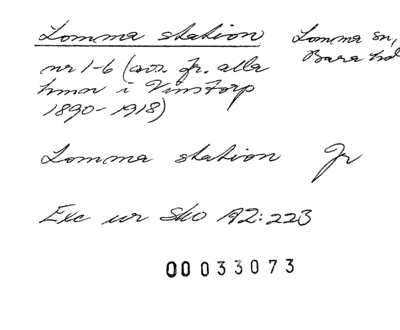 Lomma station Lomma sn,
nr 1-6 (avs. fr. alla Bara hd
hmn i Vinstorp
1890-1918)
Lomma station Jr
Exc ur Sko A2:223
00033073